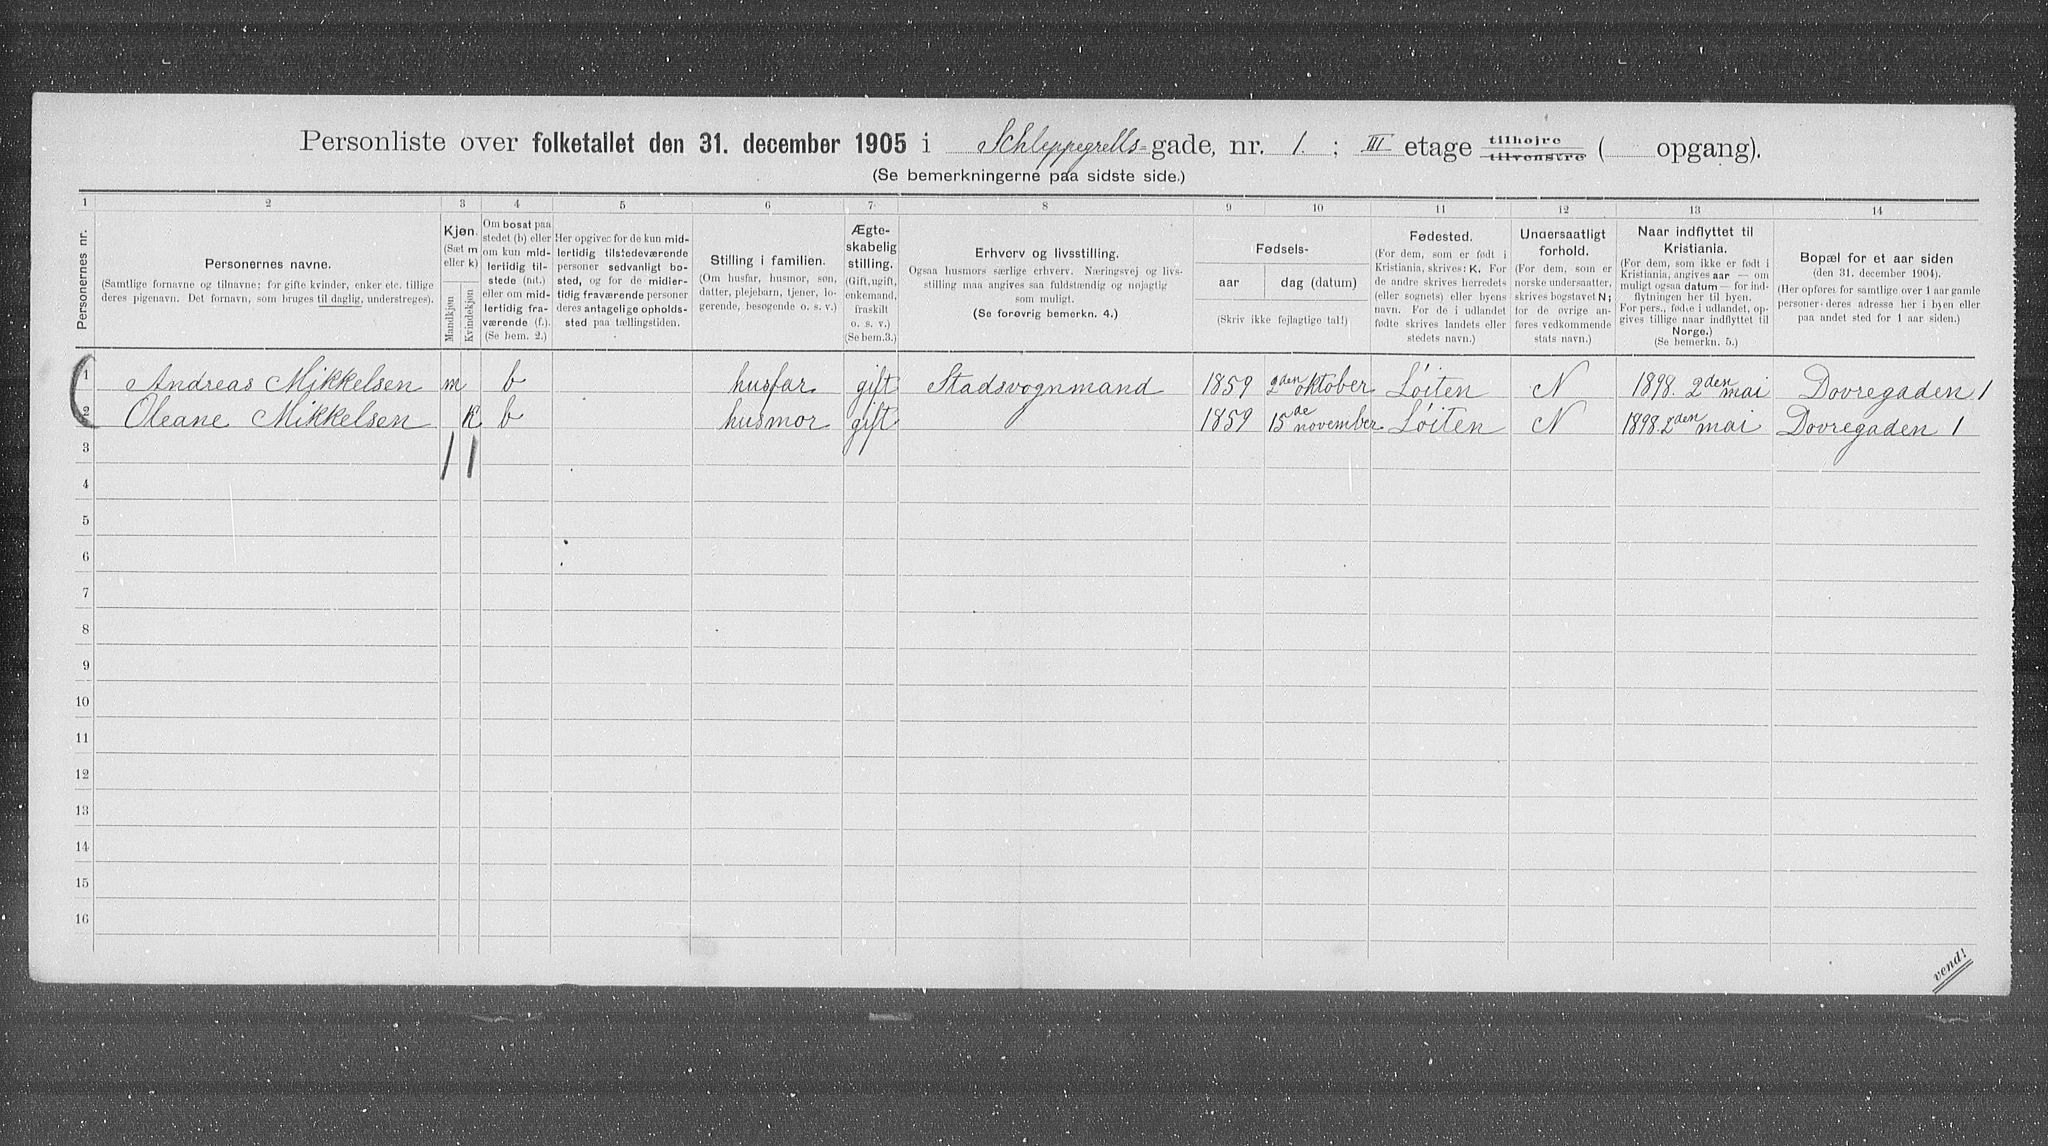 Personliste over folketallet den 31. december 1905 i Schleppegrells- gade, nr. 1. ; III etage tilhøjre tilvenstre ( opgang).
(Se bemerkningerne paa sidste side.)
1 2 3 4 5 6 7 8 9 10 11 12 13 14
Personernes nr.
Personernes navne.
(Samtlige fornavne og tilnavne; for gifte kvinder, enker etc. tillige
deres pigenavn. Det fornavn, som bruges til daglig, understreges).
Kjøn.
(Sæt m
eller k)
Mandkjøn
Kvindekjøn
Om bosat paa
stedet (b) eller
om kun mid-
lertidig til-
stede (mt.)
eller om mid-
lertidig fra-
værende (f.).
(Se bem. 2.)
Her opgives for de kun mid-
lertidig tilstedeværende
personer sedvanligt bo-
sted, og for de midler-
tidig fraværende personer
deres antagelige opholds-
sted paa tællingstiden.
Stilling i familien.
(Om husfar, husmor, søn,
datter, plejebarn, tjener, lo-
gerende, besøgende o. s. v.)
Ægte-
skabelig
stilling.
(Gift, ugift,
enkemand,
fraskilt
o. s. v.)
(Se bem. 3.)
Erhverv og livsstilling.
Ogsaa husmors særlige erhverv. Næringsvej og livs-
stilling maa angives saa fuldstændig og nøjagtig
som muligt.
(Se forøvrig bemerkn. 4.)
Fødsels-
aar dag (datum)
(Skriv ikke fejlagtige tal!)
Fødested.
(For dem, som er født i
Kristiania, skrives: K. For
de andre skrives herredets
(eller sognets) eller byens
navn. For de i udlandet
fødte skrives landets eller
stedets navn.)
Undersaatligt
forhold.
(For dem, som er
norske undersaatter,
skrives bogstavet N;
for de øvrige an-
føres vedkommende
stats navn.)
Naar indflyttet til
Kristiania.
(For dem, som ikke er født i
Kristiania, angives aar — om
muligt ogsaa datum — for ind-
flytningen her til byen.
For pers., fødte i udlandet, op-
gives tillige naar indflyttet til
Norge.)
(Se bemerkn. 5.)
Bopæl for et aar siden
(den 31. december 1904).
(Her opføres for samtlige over 1 aar gamle
personer deres adresse her i byen eller
paa andet sted for 1 aar siden.)
1 Andreas Mikkelsen m b husfar gift Stadsvognmand 1859 2den oktober Løiten N 1898. 2den mai Dovregaden 1
2 Oleane Mikkelsen K b husmor gift 1859 15de november Løiten N 1898 2den mai Dovregaden 1
3 1 1
4
5
6
7
8
9
10
11
12
13
14
15
16
vend!